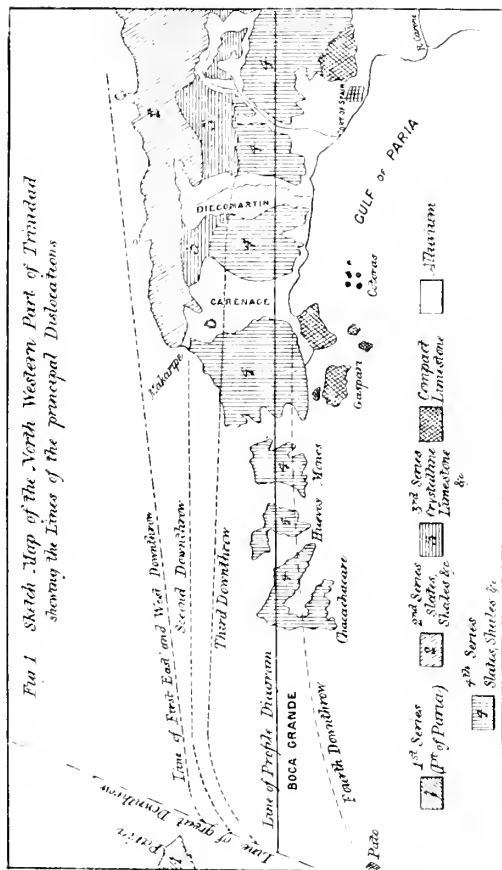 Fig 1 Sketch-Map of the North Western Part of Trinidad
shewing the Lines of the principal Dislocations
Paria
1
Line of great Downthrow
Line of First East and West Downthrow
Second Downthrow
Third Downthrow
Line of Profile Diagram
BOCA GRANDE
Fourth Downthrow
Pato
Chacachacare
4
Huevos
4
Mones
4
Makaripe
4
CARENAGE
3
DIEGOMARTIN
4
3
4
2
4
PORT OF SPAIN
R. Caroni
GULF OF PARIA
Gaspari
Cotoras
1 1st Series
(Pt. of Paria)
2 2nd Series
Slates,
Shales &c
3 3rd Series
Crystalline
Limestone
&c
Compact
Limestone
Alluvium
4 4th Series
Slates, Shales &c